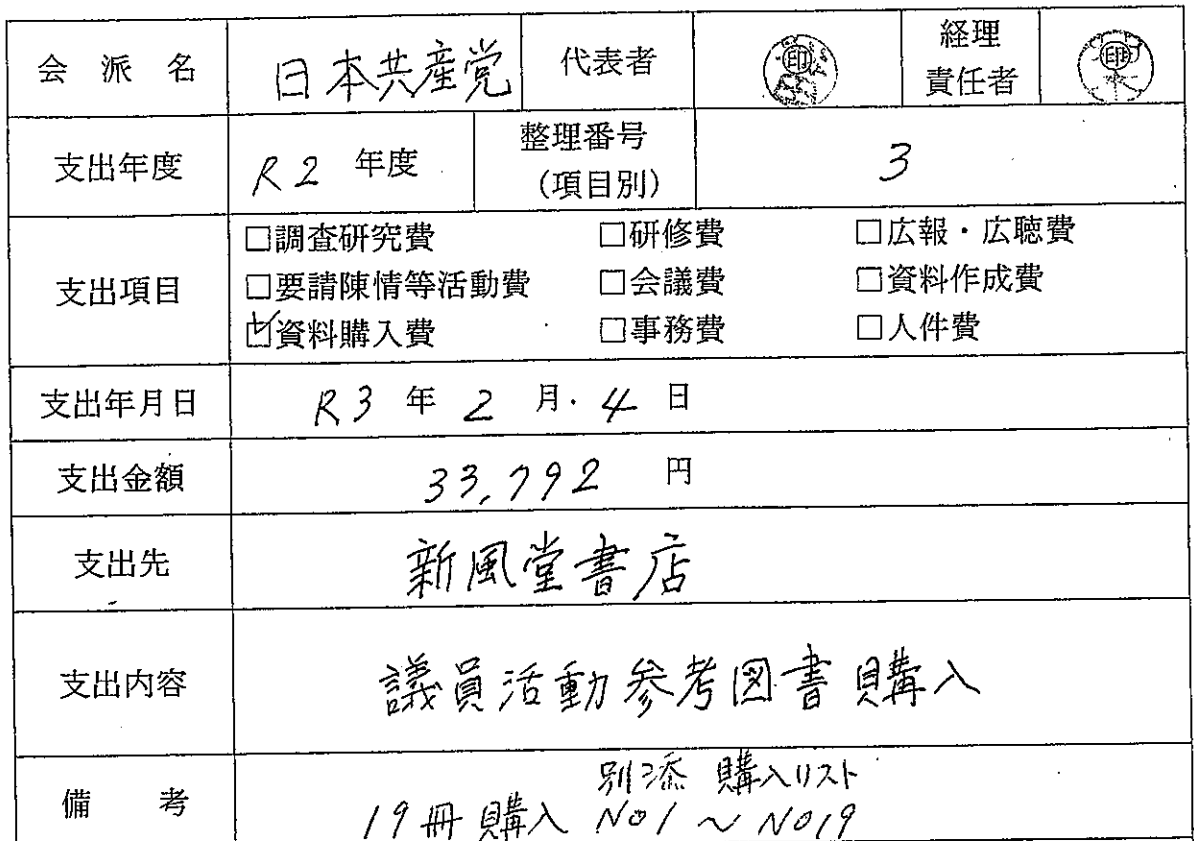 会派名 日本共産党 代表者 印 経理責任者 印
支出年度 R2 年度 整理番号(項目別) 3
支出項目
□調査研究費 □研修費 □広報・広聴費
□要請陳情等活動費 □会議費 □資料作成費
☑資料購入費 □事務費 □人件費
支出年月日 R3 年 2 月 4 日
支出金額 33,792 円
支出先 新風堂書店
支出内容 議員活動参考図書購入
備考 別添 購入リスト
19冊購入 No1 ~ No19